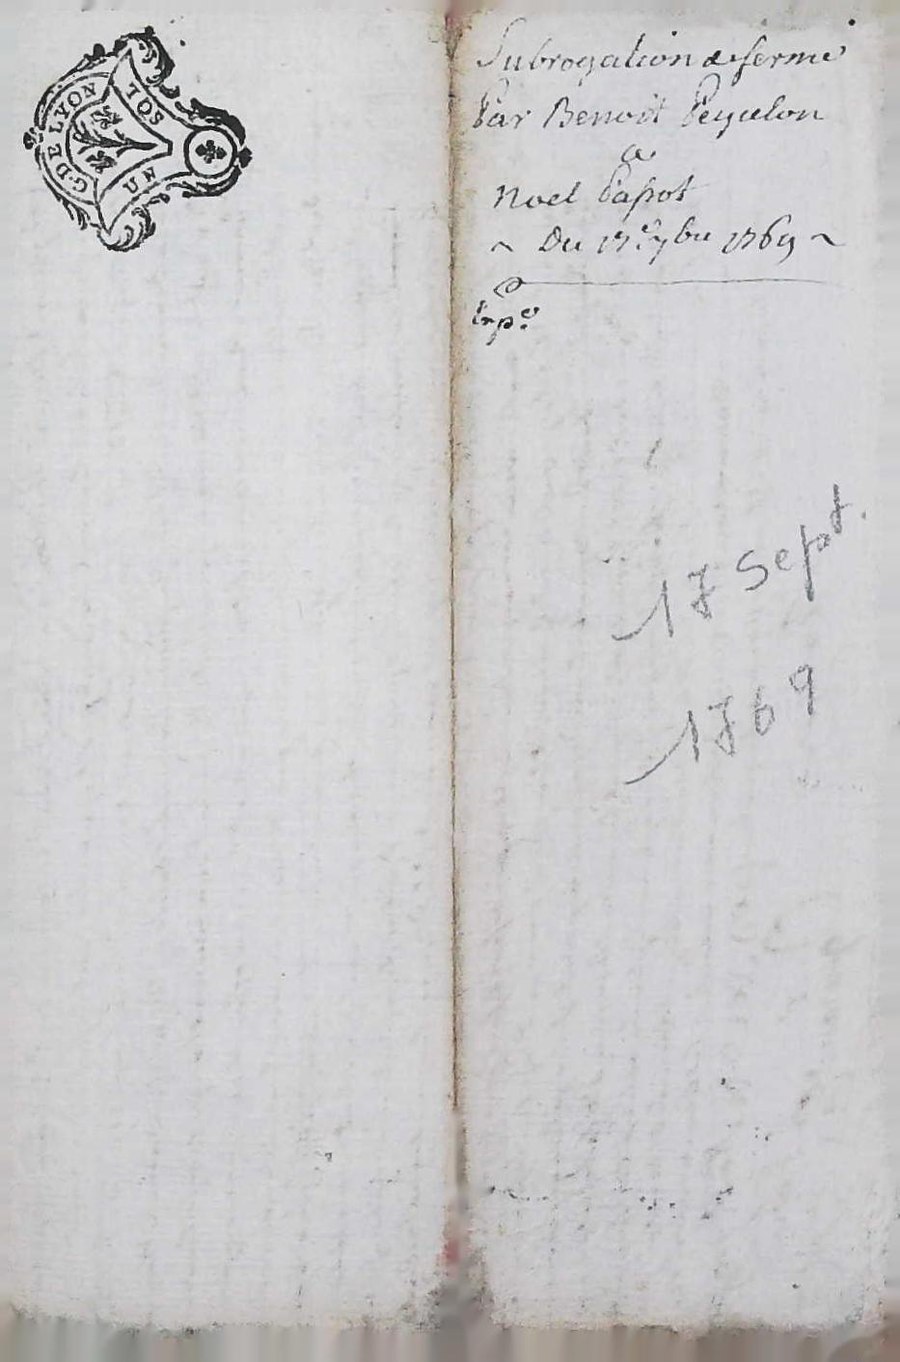 G. DE LYON
UN SOL TOS
Subrogation de ferme
Par Benoit Peycelon
a
Noel Papot
~ Du 17e 7bre 1769 ~
Expe
17 Sept.
1769